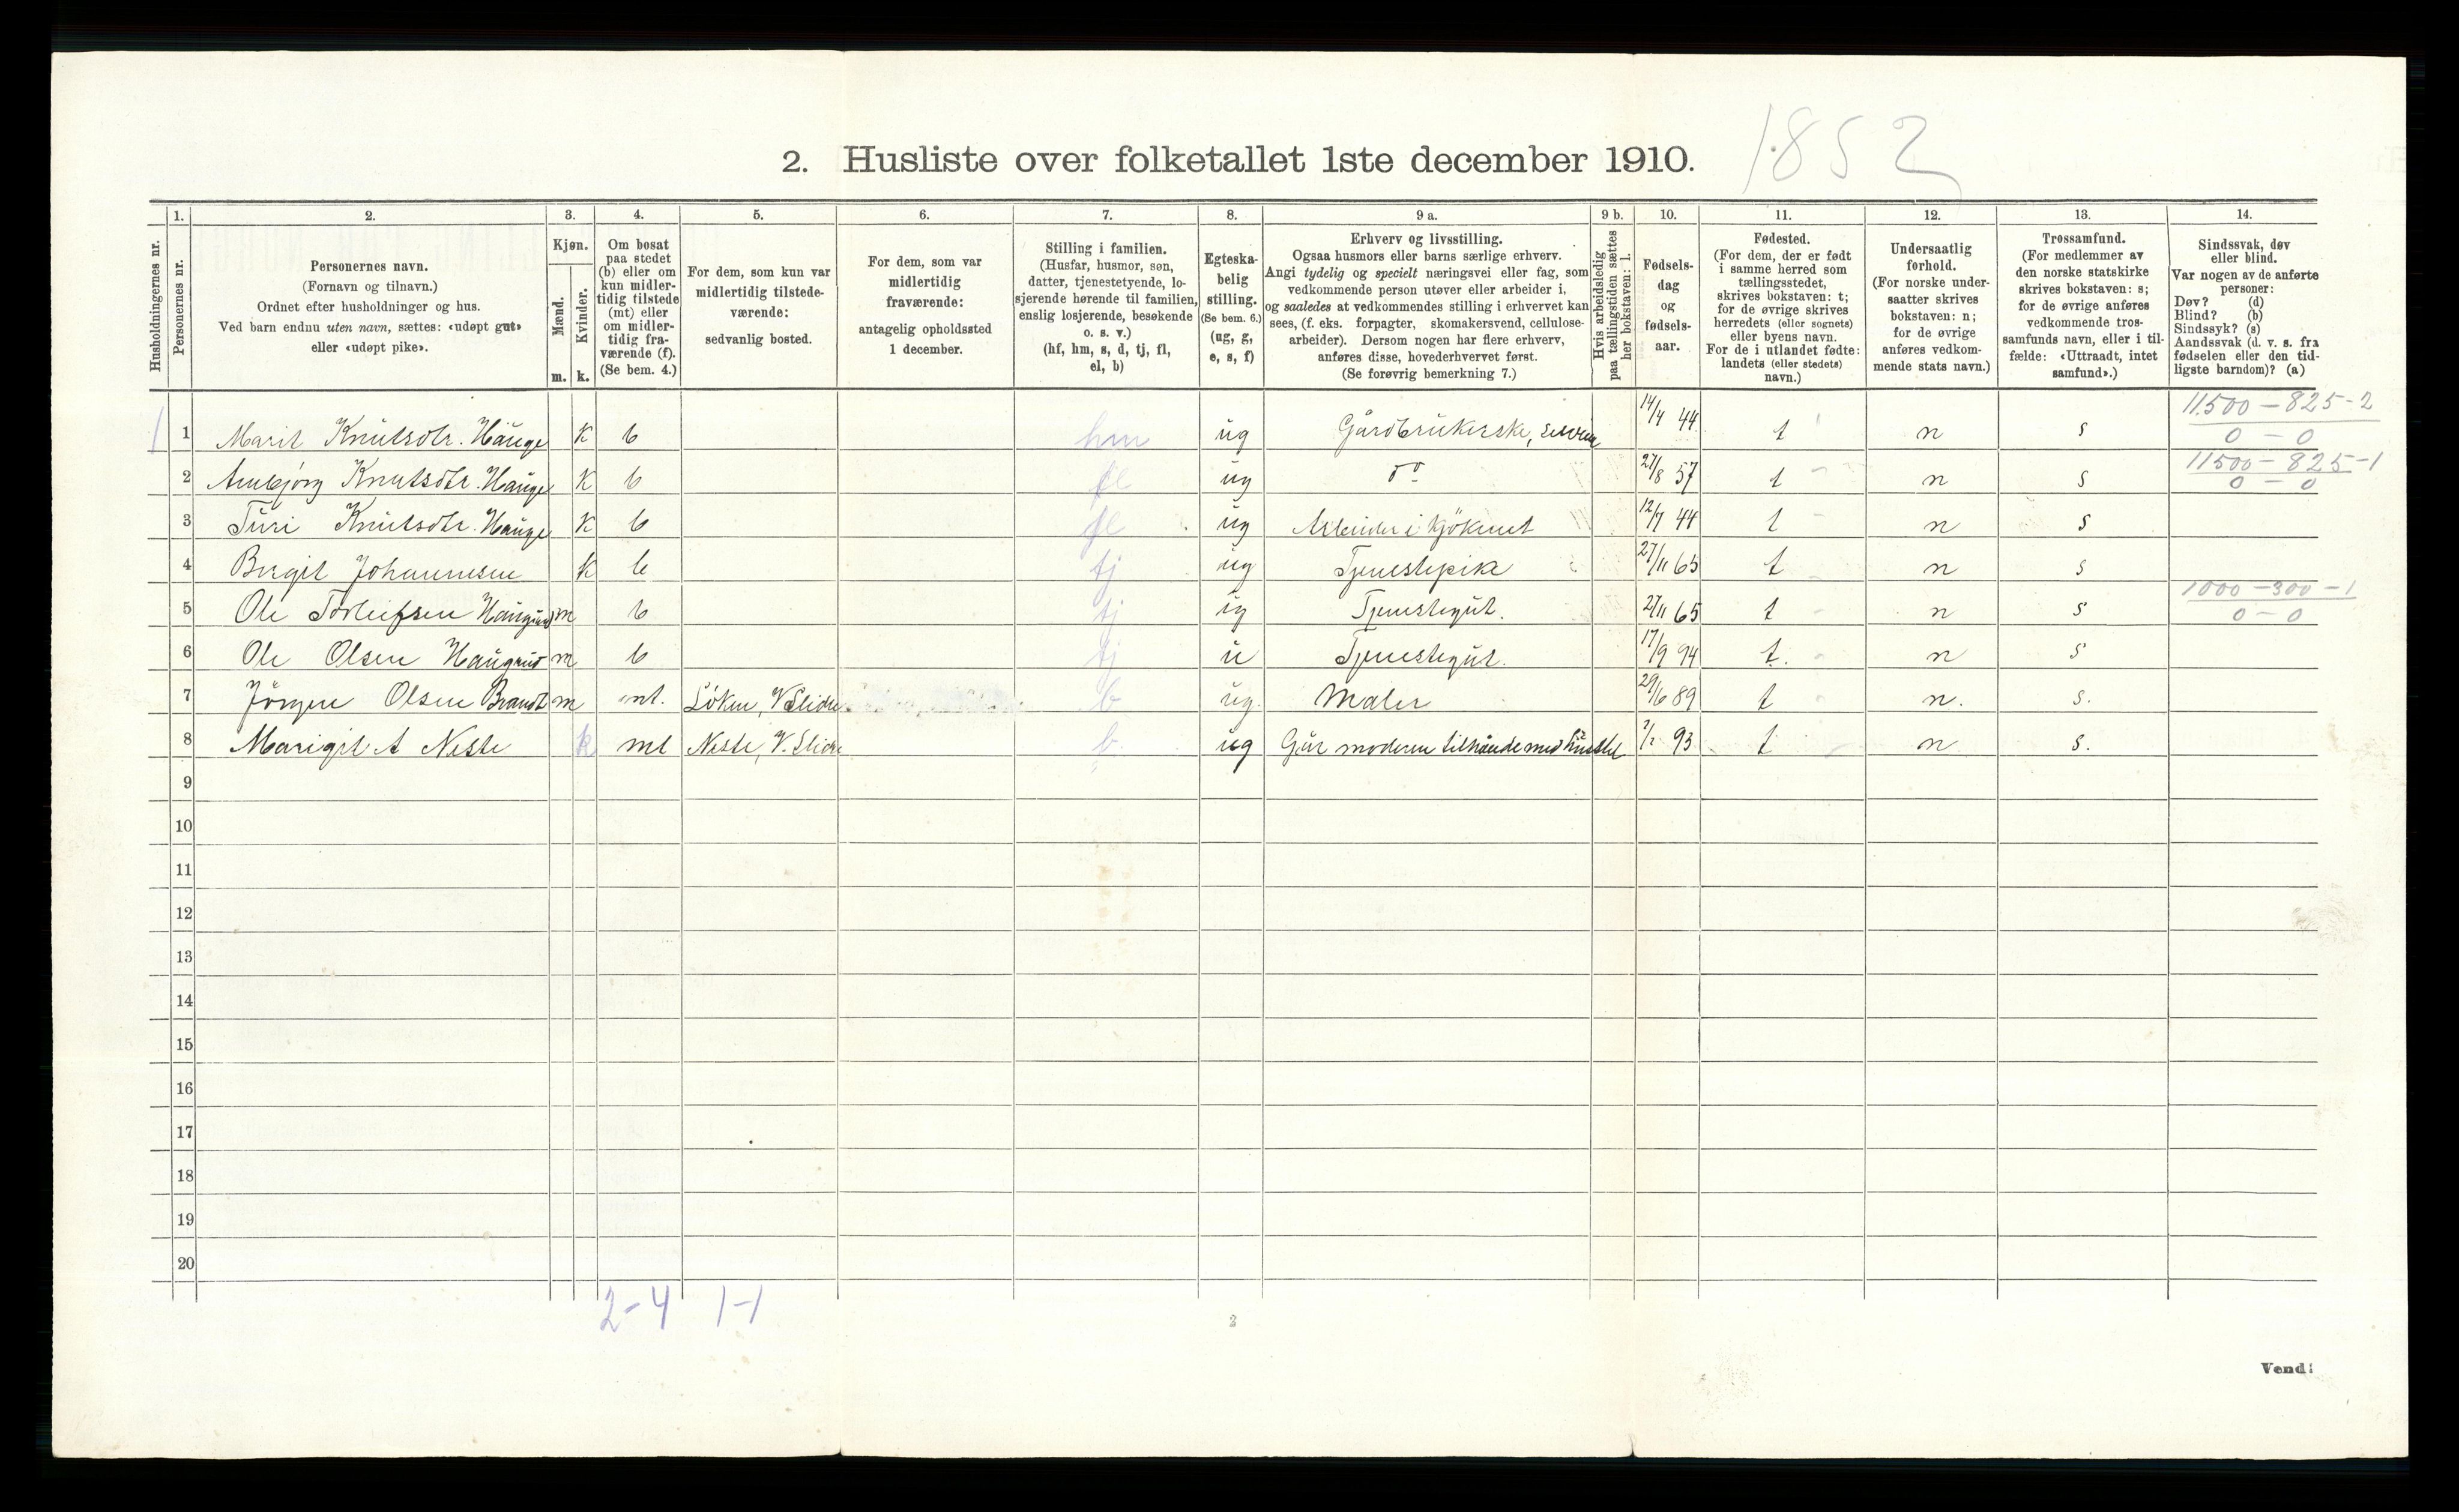 1852
2. Husliste over folketallet 1ste december 1910.
1. 2. 3. 4. 5. 6. 7. 8. 9 a. 9 b. 10. 11. 12. 13. 14.
Husholdningernes nr.
Personernes nr.
Personernes navn.
(Fornavn og tilnavn.)
Ordnet efter husholdninger og hus.
Ved barn endnu uten navn, sættes: «udøpt gut»
eller «udøpt pike».
Kjøn.
Mænd.
Kvinder.
m. k.
Om bosat
paa stedet
(b) eller om
kun midler-
tidig tilstede
(mt) eller
om midler-
tidig fra-
værende (f).
(Se bem. 4.)
For dem, som kun var
midlertidig tilstede-
værende:
sedvanlig bosted.
For dem, som var
midlertidig
fraværende:
antagelig opholdssted
1 december.
Stilling i familien.
(Husfar, husmor, søn,
datter, tjenestetyende, lo-
sjerende hørende til familien,
enslig losjerende, besøkende
o. s. v.)
(hf, hm, s, d, tj, fl,
el, b)
Egteska-
belig
stilling.
(Se bem. 6.)
(ug, g,
e, s, f)
Erhverv og livsstilling.
Ogsaa husmors eller barns særlige erhverv.
Angi tydelig og specielt næringsvei eller fag, som
vedkommende person utøver eller arbeider i,
og saaledes at vedkommendes stilling i erhvervet kan
sees, (f. eks. forpagter, skomakersvend, cellulose-
arbeider). Dersom nogen har flere erhverv,
anføres disse, hovederhvervet først.
(Se forøvrig bemerkning 7.)
Hvis arbeidsledig
paa tællingstiden sættes
her bokstaven: l.
Fødsels-
dag
og
fødsels-
aar.
Fødested.
(For dem, der er født
i samme herred som
tællingsstedet,
skrives bokstaven: t;
for de øvrige skrives
herredets (eller sognets)
eller byens navn.
For de i utlandet fødte:
landets (eller stedets)
navn.)
Undersaatlig
forhold.
(For norske under-
saatter skrives
bokstaven: n;
for de øvrige
anføres vedkom-
mende stats navn.)
Trossamfund.
(For medlemmer av
den norske statskirke
skrives bokstaven: s;
for de øvrige anføres
vedkommende tros-
samfunds navn, eller i til-
fælde: «Uttraadt, intet
samfund».)
Sindssvak, døv
eller blind.
Var nogen av de anførte
personer:
Døv? (d)
Blind? (b)
Sindssyk? (s)
Aandssvak (d. v. s. fra
fødselen eller den tid-
ligste barndom)? (a)
11.500 - 825 - 2
1 1 Marit Knutsdtr. Hauge k b hm ug Gårdbrukerske, 14/4 44 t n s 0 - 0
11500 - 825 - 1
2 Knutsdtr. Hauge k b fl ug do 27/8 57 t n s 0 - 0
3 Turi Knutsdtr. Hauge k b fl ug Arbeider i kjökenet 12/7 44 t n s
4 Birgit Johannesen k b tj ug Tjenestepike 27/11 65 t n s
1000 - 300 - 1
5 Ole Torleifsen m b tj ug Tjenestegut. 27/11 65 t n s 0 - 0
6 Ole Olsen Haugrud m b tj u Tjenestegut. 17/9 94 t. n s
7 Jörgen Olsen Brandt m mt. Löken, V Slidre. b ug. Maler 29/6 89 t n. s.
8 Marigit A Neste k mt Neste, V. Slidre b ug Går moderen tilhånde med 93 t n s.
9
10
11
12
13
14
15
16
17
18
19
20
2-4 1-1
Vend!